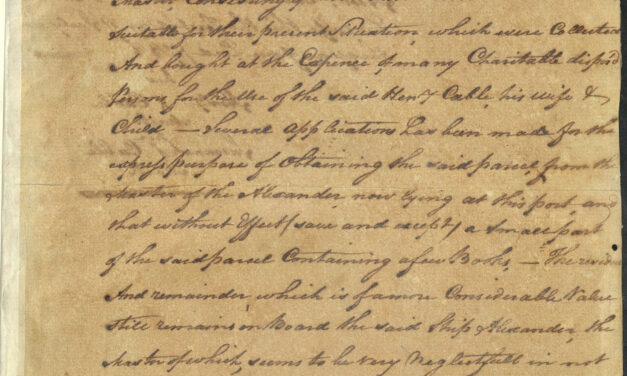 suitable for their present Situation, which were Collected
And bought at the Expence of many Charitable dispos'd
Persons for the Use of the said Henry Cable, his wife &
Child — Several applications has been made for the
express purpose of Obtaining the said parcel, from the
Master of the Alexander, now lying at this port, and
that without Effect (save and except) a small part
of the said parcel Containing a few Books, — The residue
And remainder, which is of a more Considerable Value
still remains on Board the said Ship Alexander, the
Master of which, seems to be very Neglectfull in not